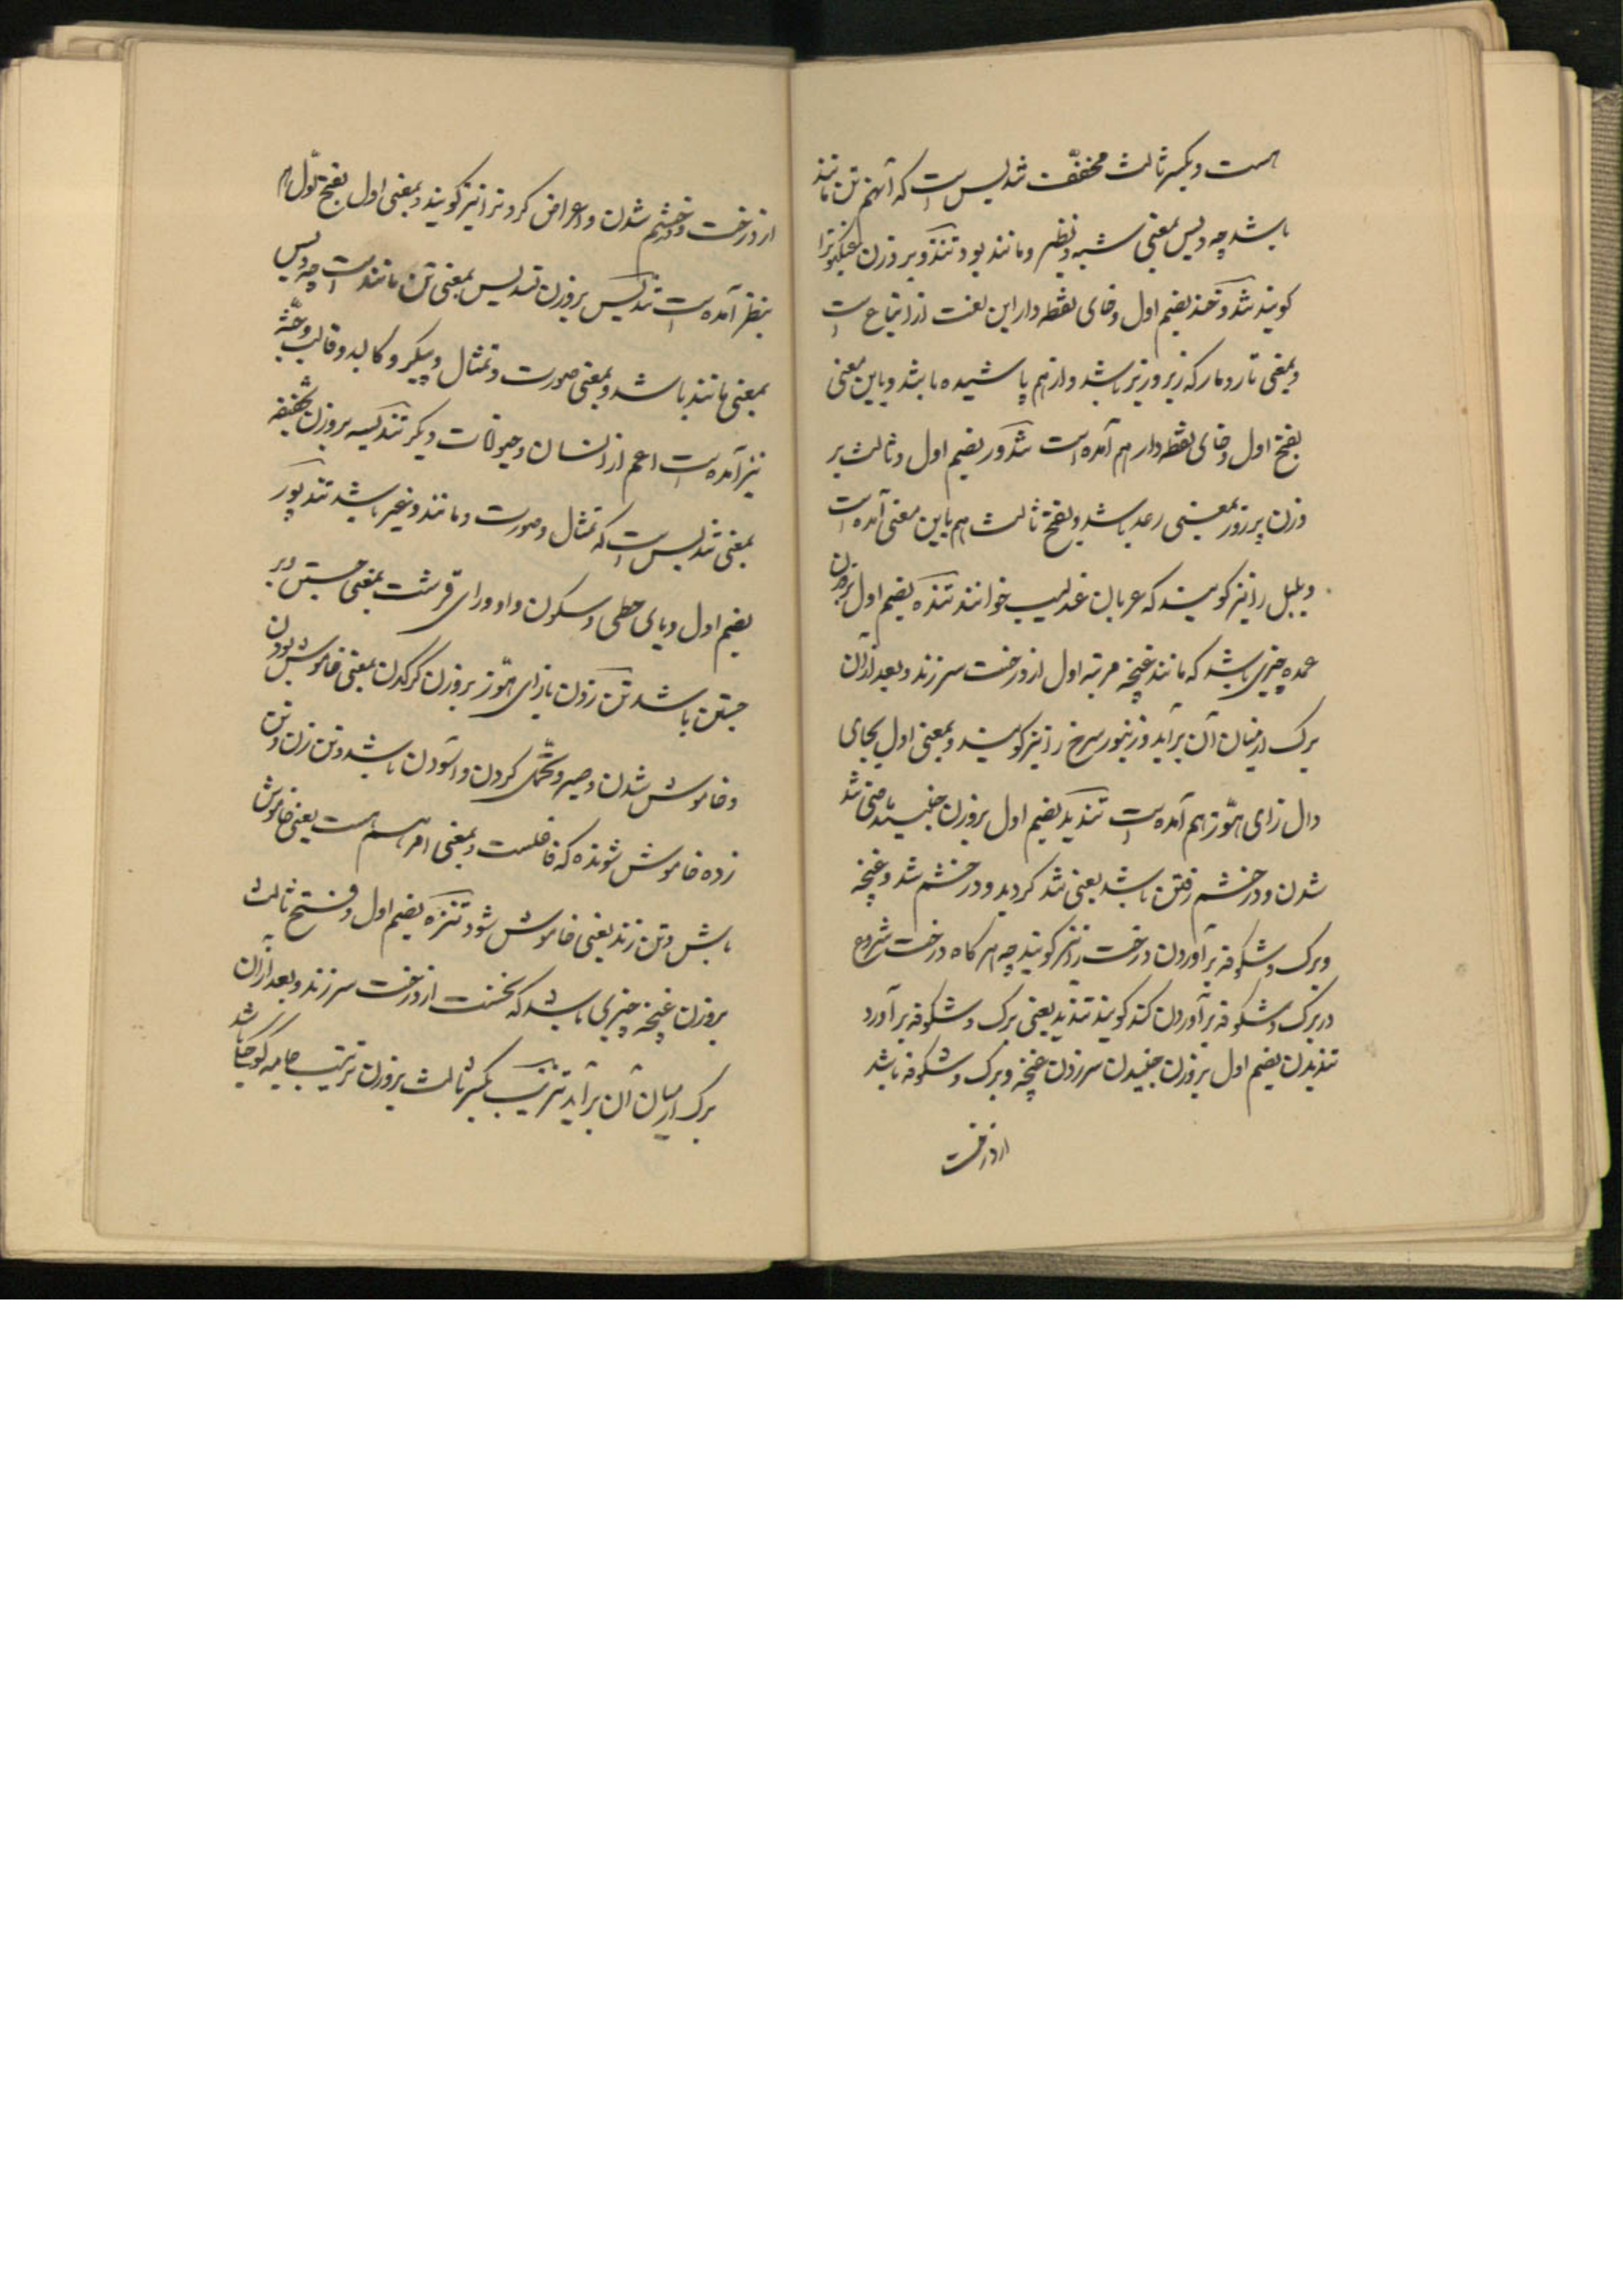 هست و بکسر ثالث مخفف تندیس است که آنهم تن مانند
باشد چه دیس بمعنی شبه و نظیر و مانند بود تندو بر وزن
کویند تند و خند بضم اول و خای نقطه دار این لغت از اتباع است
و بمعنی تار و مار که زیر و زبر باشد و از هم پاشیده باشد و باین معنی
بفتح اول و خای نقطه دار هم آمده است تندور بضم اول و ثالث بر
وزن پر زور بمعنی رعد باشد و بفتح ثالث هم باین معنی آمده است
و بلبل را نیز کویند که عربان عندلیب خوانند تنده بضم اول بر وزن
عمده چیزی باشد که مانند غنچه مرتبه اول از درخت سر زند و بعد از آن
برک از میان آن برآید و زنبور سرخ را نیز کویند و بمعنی اول بجای
دال زای هوّز هم آمده است تندید بضم اول بر وزن جنبید ماضی تند
شدن و در خشم رفتن باشد یعنی تند کردید و در خشم شد و غنچه
و برک و شکوفه برآوردن درخت را نیز کویند چه هر کاه درخت شروع
در برک و شکوفه برآوردن کند کویند تندید یعنی برک و شکوفه برآورد
تندیدن بضم اول بر وزن جنبیدن سر زدن غنچه و برک و شکوفه باشد
از درخت
از درخت و خشم شدن و اعراض کردن را نیز کویند و بمعنی اول بفتح اول هم
بنظر آمده است تندیس بر وزن تندلیس بمعنی تن مانند است چه دیس
بمعنی مانند باشد و بمعنی صورت و تمثال و پیکر و کالبد و قالب و جثه
نیز آمده است اعم از انسان و حیوانات دیکر تندیسه بر وزن
بمعنی تندیس است که تمثال و صورت و مانند و غیره باشد تندیور
بضم اول و یای حطی و سکون واو و رای قرشت بمعنی جستن و بر
جستن باشد تن زدن بازای هوّز بر وزن کرکدن بمعنی خاموش بودن
و خاموش شدن و صبر و تحمّل کردن و آسودن باشد و تن زن و تن
زده خاموش شونده که فاعلست و بمعنی امر هم هست یعنی خاموش
باش و تن زند یعنی خاموش شود تنزه بضم اول و فتح ثالث
بر وزن غنچه چیزی باشد که نخست از درخت سر زند و بعد از آن
برک از میان آن برآید تنزیب بکسر ثالث بر وزن ترتیب جامه کوچک باشد